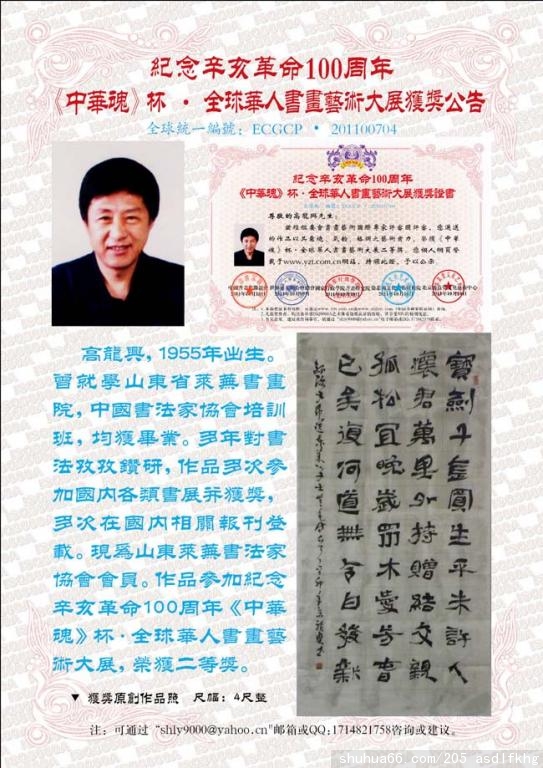 紀念辛亥革命100周年
《中華魂》杯·全球華人書畫藝術大展獲獎公告
全球統一編號：ECGCP • 201100704
紀念辛亥革命100周年
《中華魂》杯·全球華人書畫藝術大展獲獎證書
尊敬的高龍興先生：
高龍興，1955年出生。
曾就學山東省萊蕪書畫
院，中國書法家協會培訓
班，均獲畢業。多年對書
法孜孜鑽研，作品多次參
加國内各類書展并獲獎，
多次在國内相關報刊登
載。現爲山東萊蕪書法家
協會會員。作品參加紀念
辛亥革命100周年《中華
魂》杯·全球華人書畫藝
術大展，榮獲二等獎。
寶劍千金買生平未許人
懷君萬里別持贈結交親
孤松宜晚歲眾木愛芳春
已矣復何道無令白發新
▼ 獲獎原創作品照 尺幅：4尺整
注：可通過 "shly9000@yahoo.cn"郵箱或QQ:1714821758咨詢或建議。
shuhua66_com/205_asdlfkhg